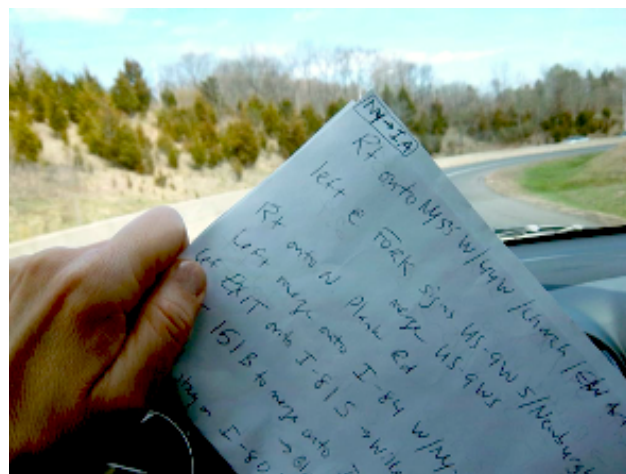 NY→IA
Rt onto NY55 W/44W/Church/
left @ FORK signs US-9W S/Newburgh
merge US-9WS
Rt onto N Plank Rd
Left merge onto I-84 W/NY
Lef EXIT onto I-81 S →Wilke
161B to merge onto I
stay on I-80 →